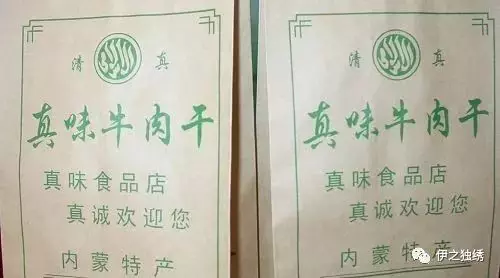 清 真
真味牛肉干
真味食品店
真诚欢迎您
内蒙特产
清 真
真味牛肉干
真味食品店
真诚欢迎您
内蒙特产
伊之独绣